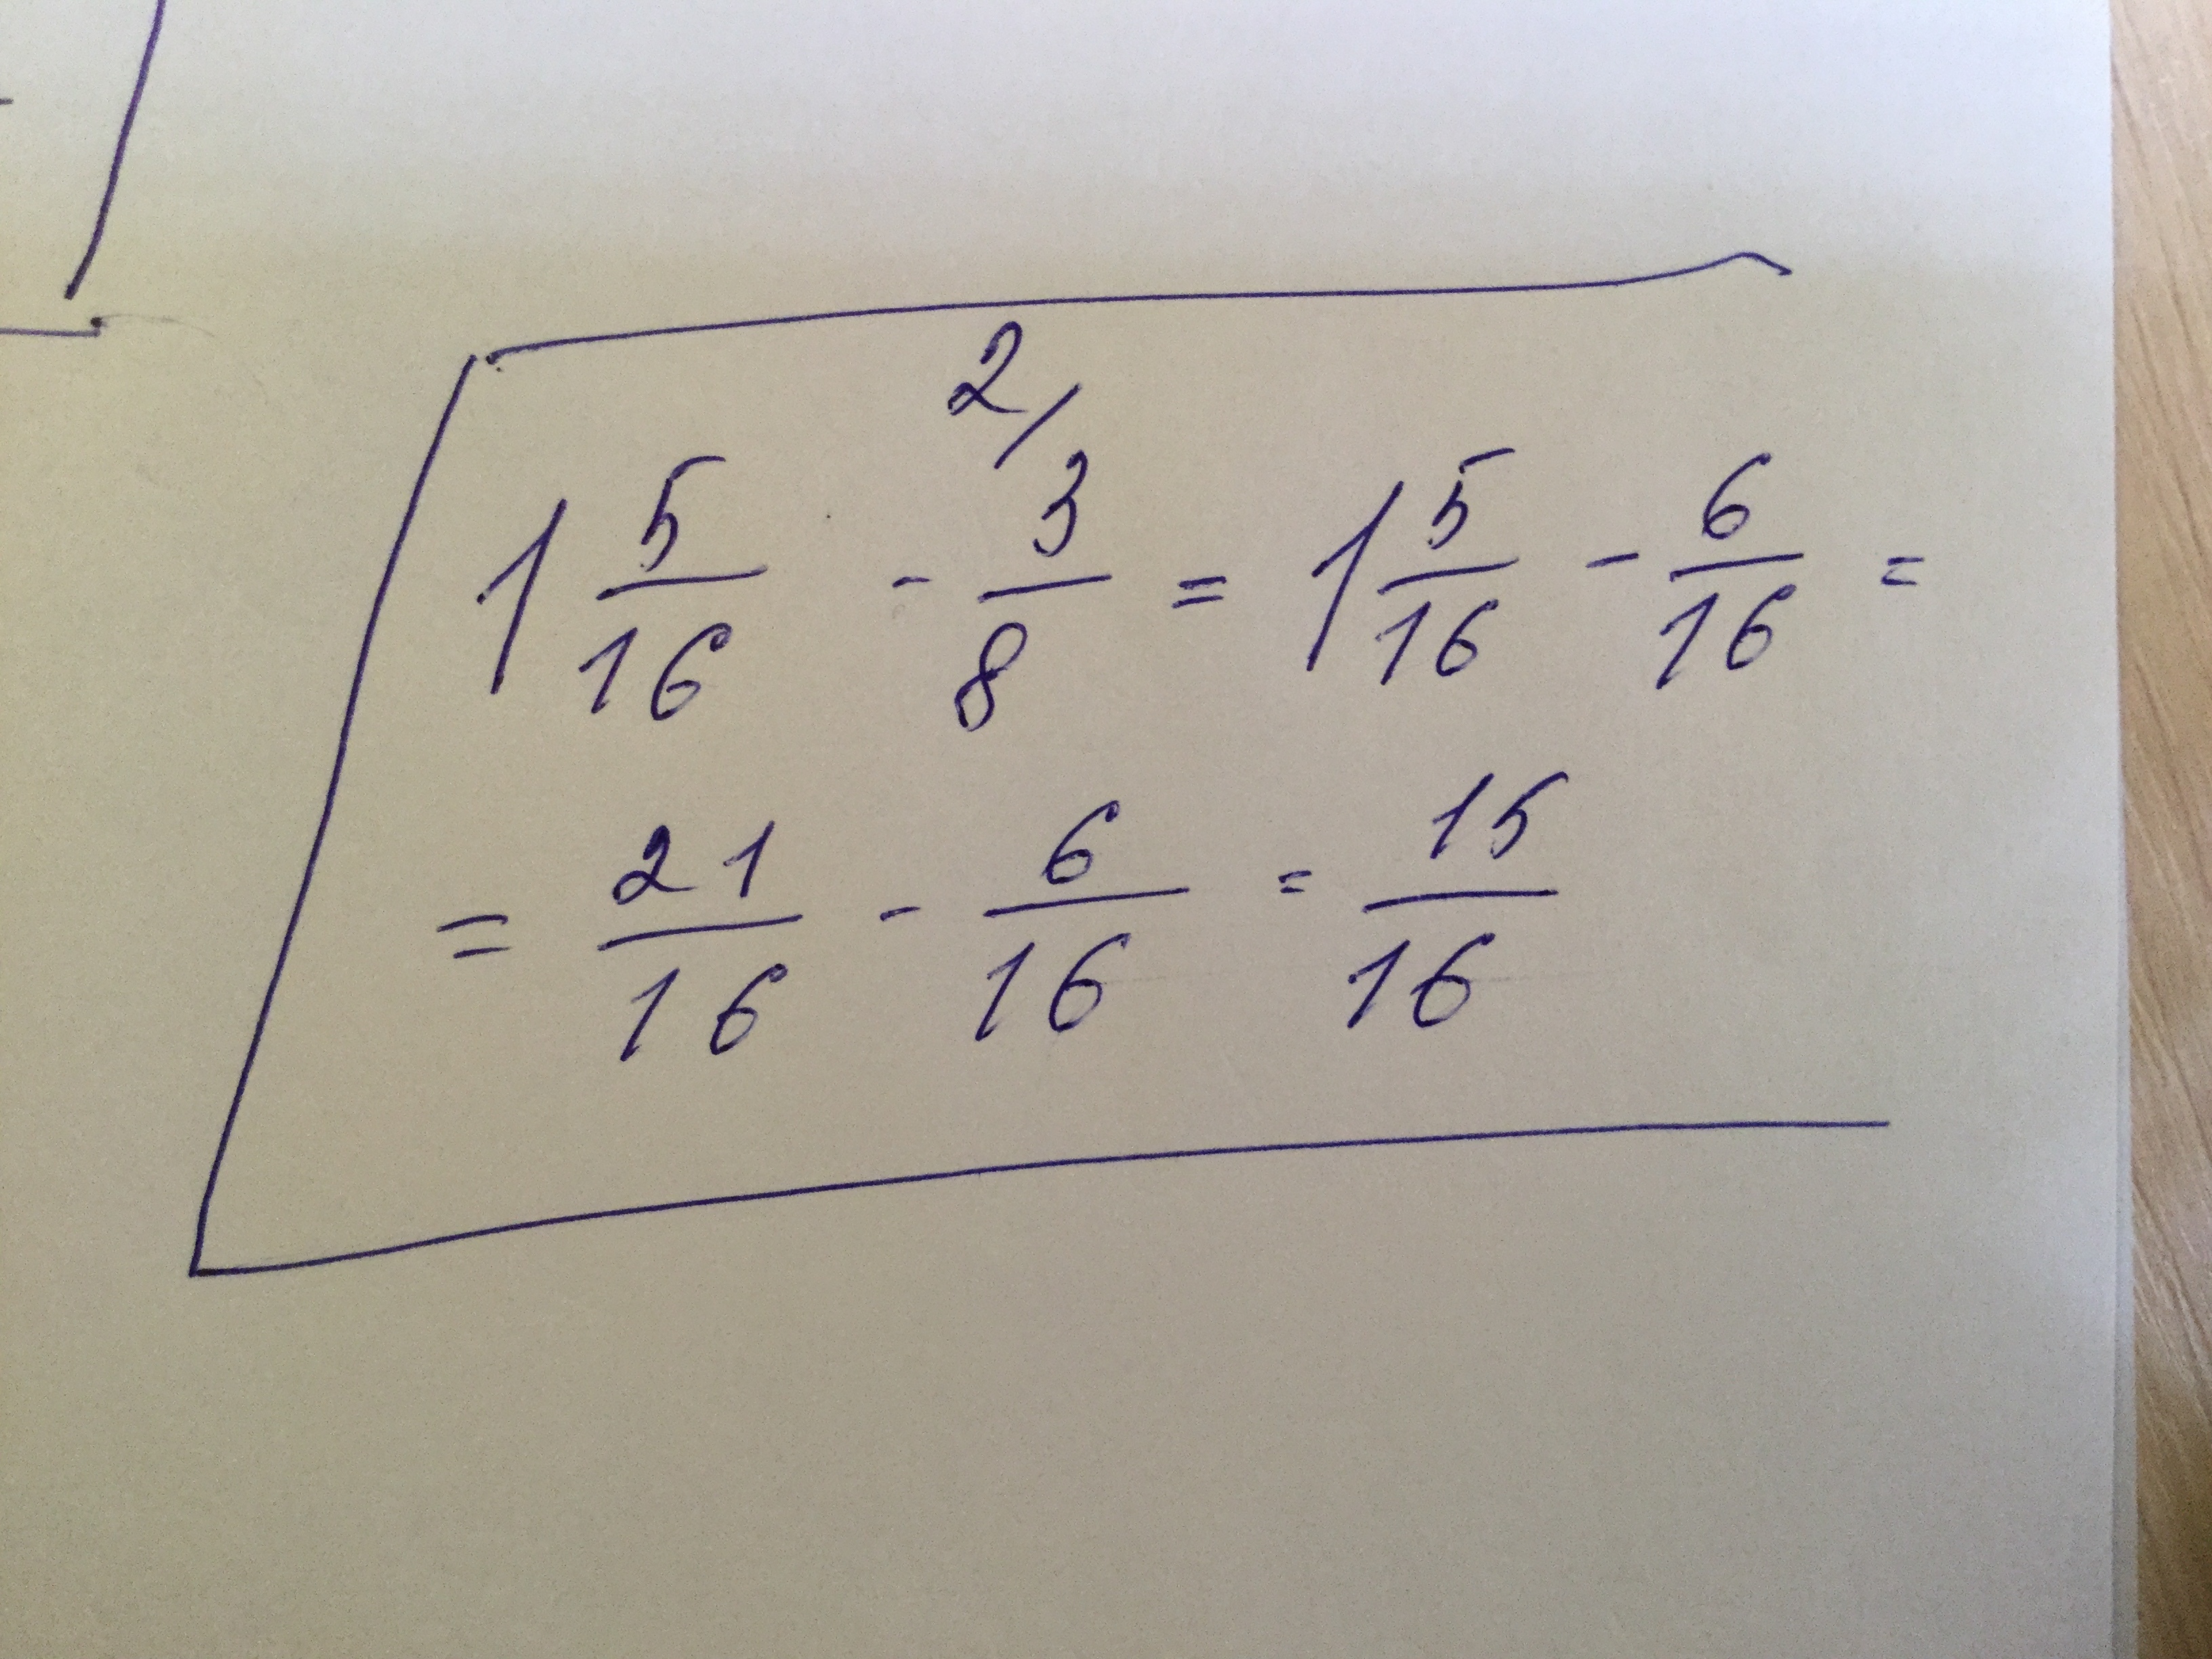 2/
1 5/16 - 3/8 = 1 5/16 - 6/16 =
= 21/16 - 6/16 = 15/16